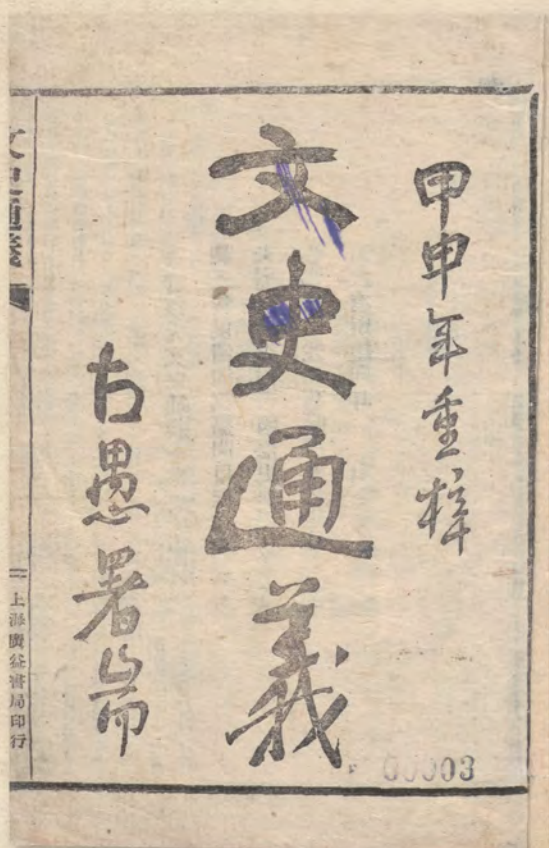 甲申年重梓
文史通義
古愚署耑
文史通義
上海廣益書局印行
00003